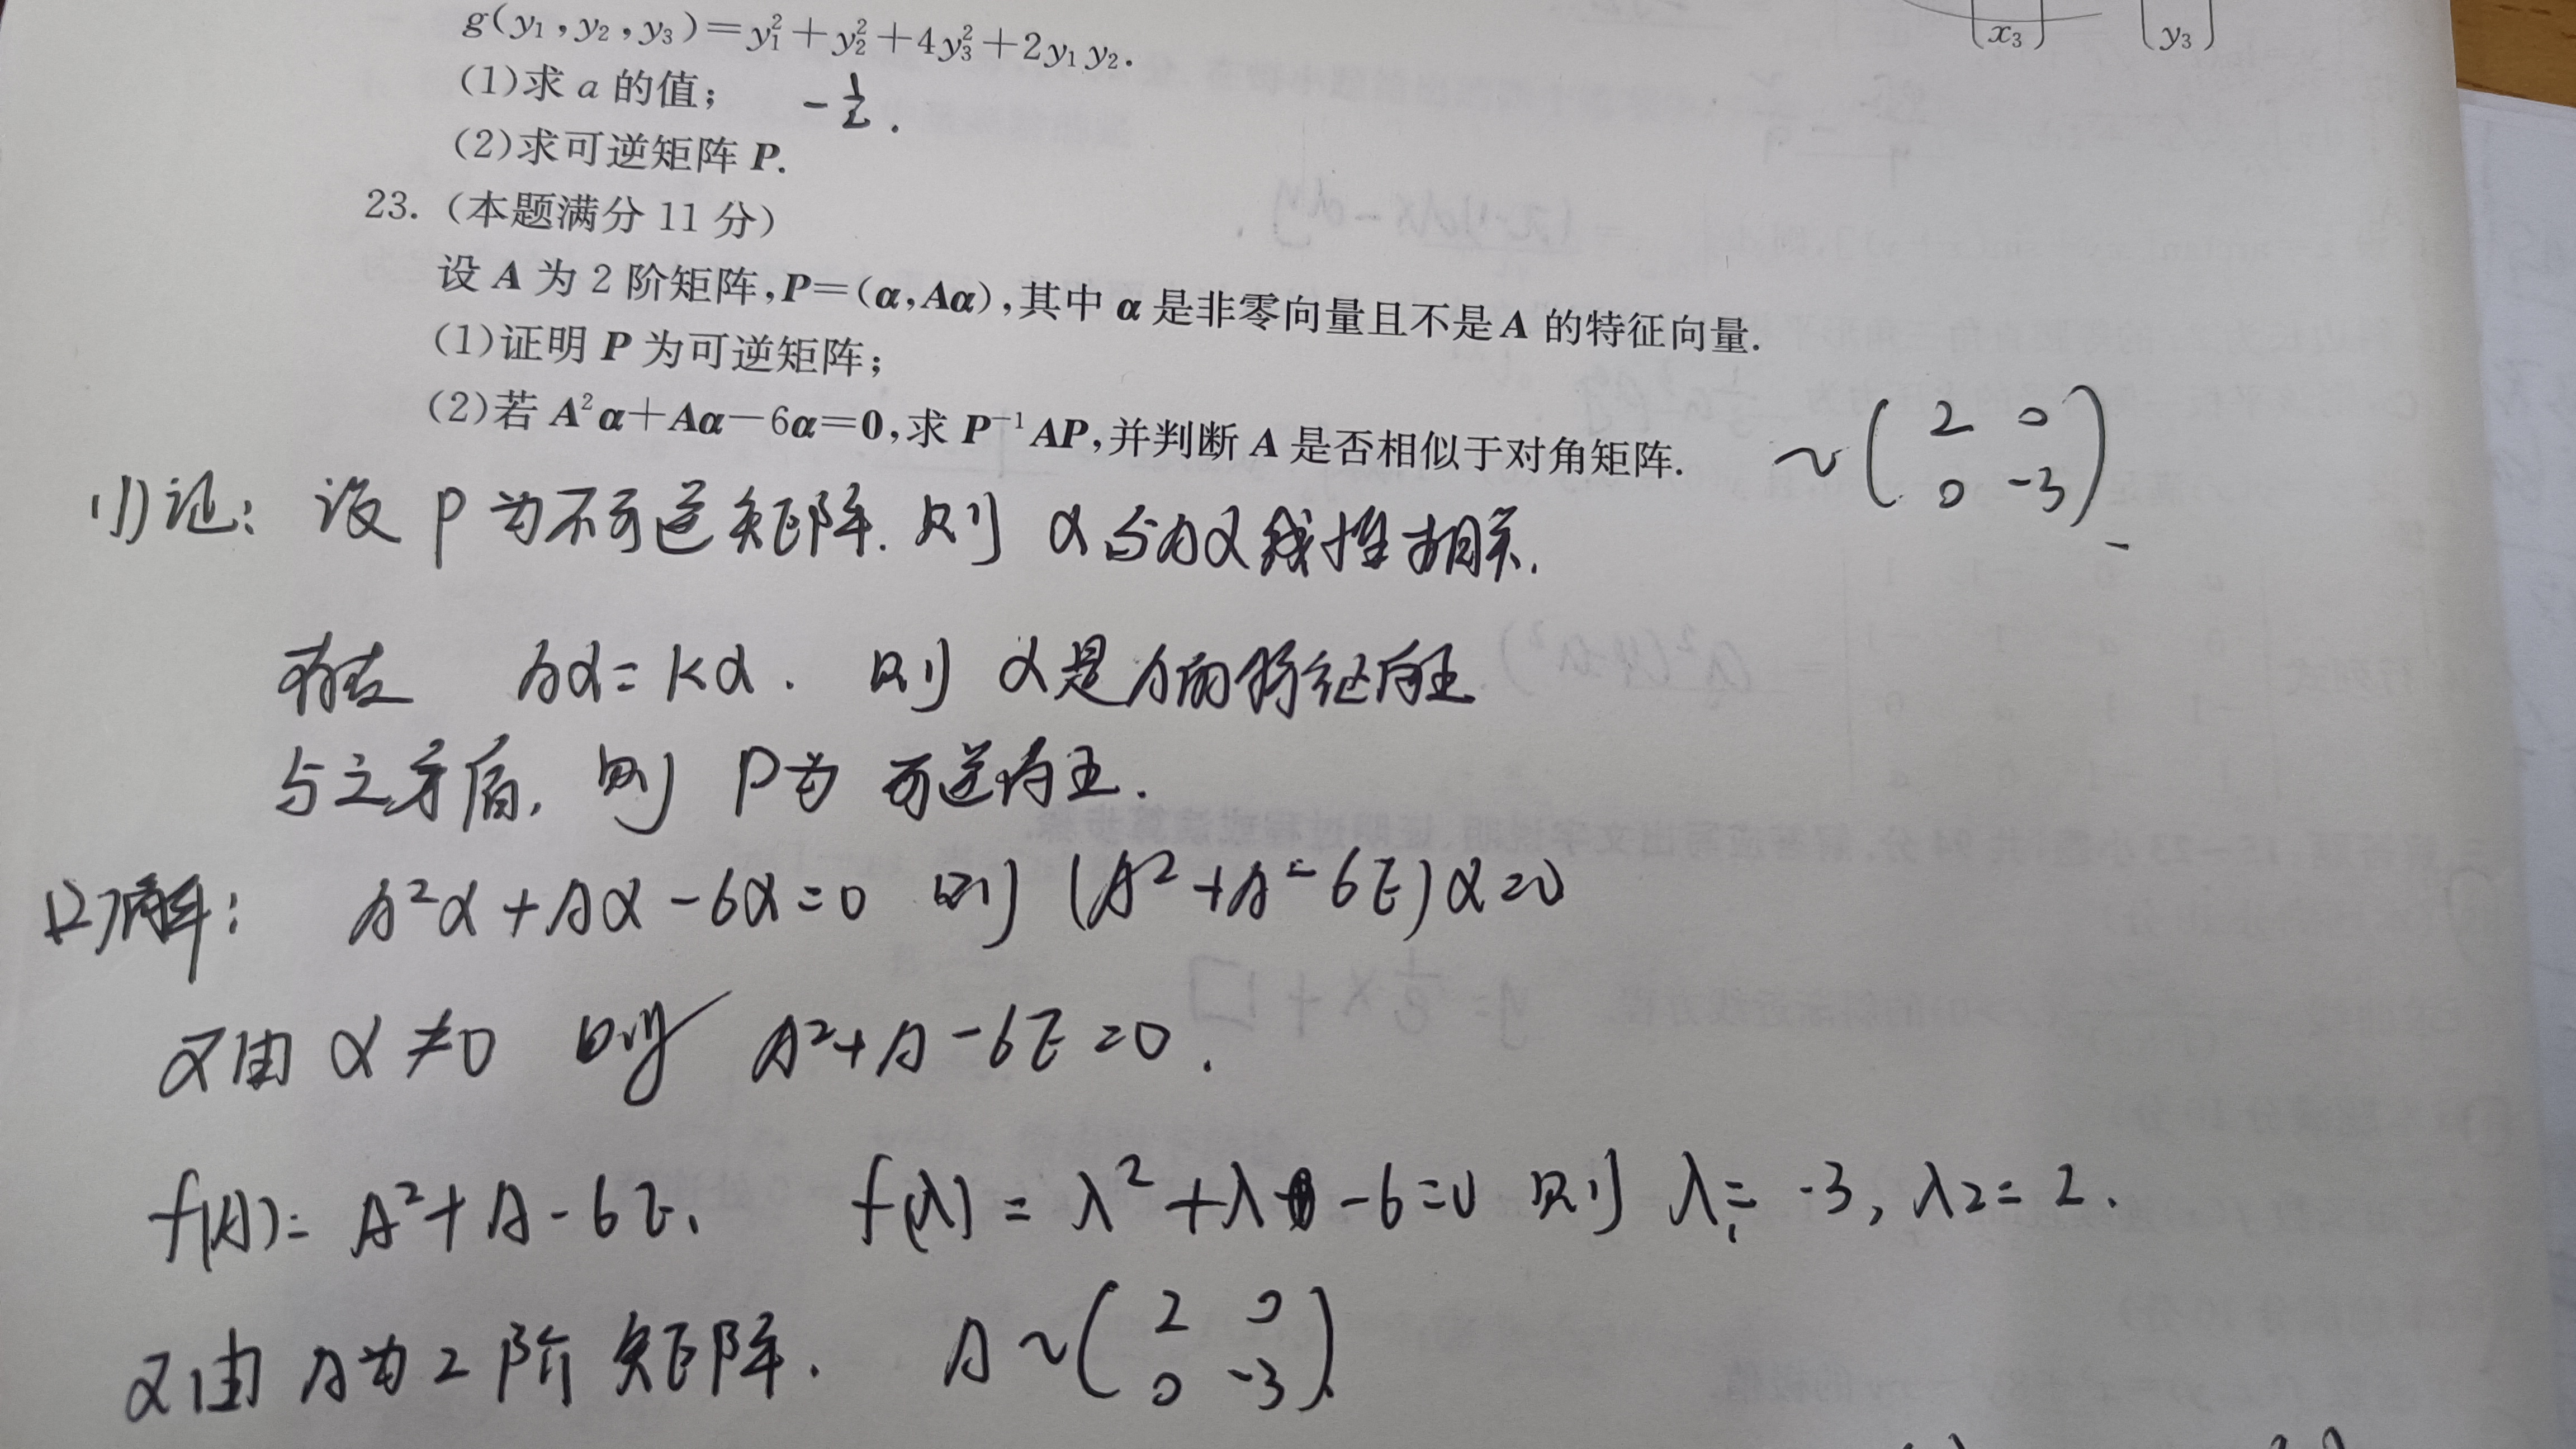 g(y₁,y₂,y₃)=y₁²+y₂²+4y₃²+2y₁y₂.
x₃ y₃
(1)求 a 的值; -1/2.
(2)求可逆矩阵 P.
23. (本题满分 11 分)
设 A 为 2 阶矩阵,P=(α,Aα),其中 α 是非零向量且不是 A 的特征向量.
(1)证明 P 为可逆矩阵;
(2)若 A²α+Aα-6α=0,求 P⁻¹AP,并判断 A 是否相似于对角矩阵. ~(2 0
0 -3)
(1)证: 设 P 为不可逆矩阵. 则 α 与 Aα 线性相关.
存在 Aα=kα. 则 α是A的特征向量
与之矛盾, 则 P为 可逆
(2)解: A²α+Aα-6α=0 则 (A²+A-6E)α=0
又由 α≠0 则 A²+A-6E=0.
f(A)=A²+A-6E. f(λ)=λ²+λ-6=0 则 λ₁=-3, λ₂=2.
又由 A为2阶矩阵. A~(2 0
0 -3)